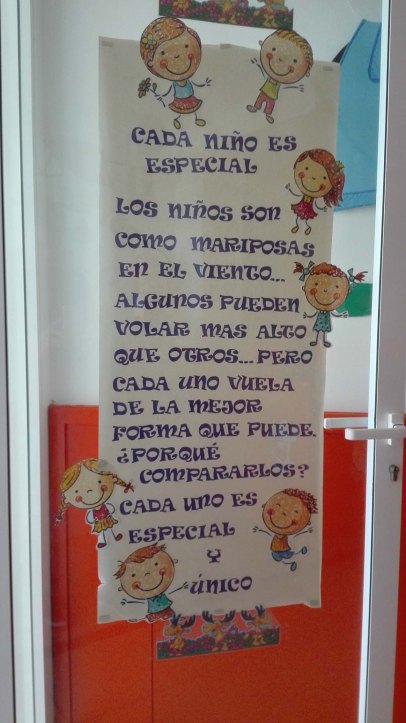 CADA NIÑO ES
ESPECIAL
LOS NIÑOS SON
COMO MARIPOSAS
EN EL VIENTO...
ALGUNOS PUEDEN
VOLAR MAS ALTO
QUE OTROS... PERO
CADA UNO VUELA
DE LA MEJOR
FORMA QUE PUEDE.
¿PORQUÉ
COMPARARLOS?
CADA UNO ES
ESPECIAL
Y
ÚNICO